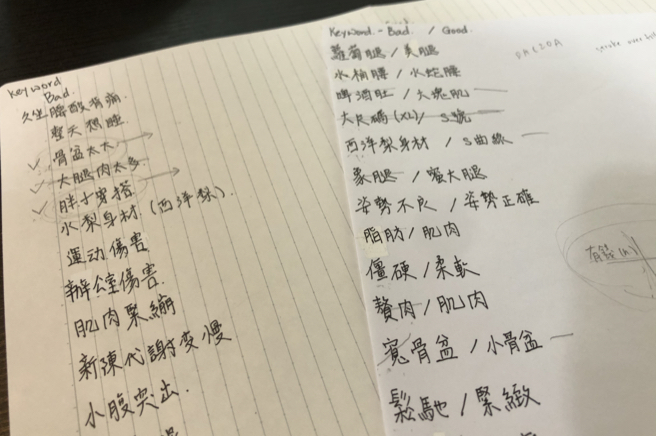 Keyword
Bad.
久坐腰酸背痛
整天想睡
骨盆太大
大腿肉太多
胖子穿搭
水梨身材 (西洋梨).
運动傷害
辦公室傷害
肌肉緊繃
新陳代謝变慢
小腹突出.
Keyword - Bad. / Good.
蘿蔔腿 / 美腿
水桶腰 / 水蛇腰
啤酒肚 / 大塊肌
大尺碼 (XL) / S號
西洋梨身材 / S曲線
象腿 / 蜜大腿
姿勢不良 / 姿勢正確
脂肪 / 肌肉
僵硬 / 柔軟
贅肉 / 肌肉
寬骨盆 / 小骨盆
鬆馳 / 緊緻